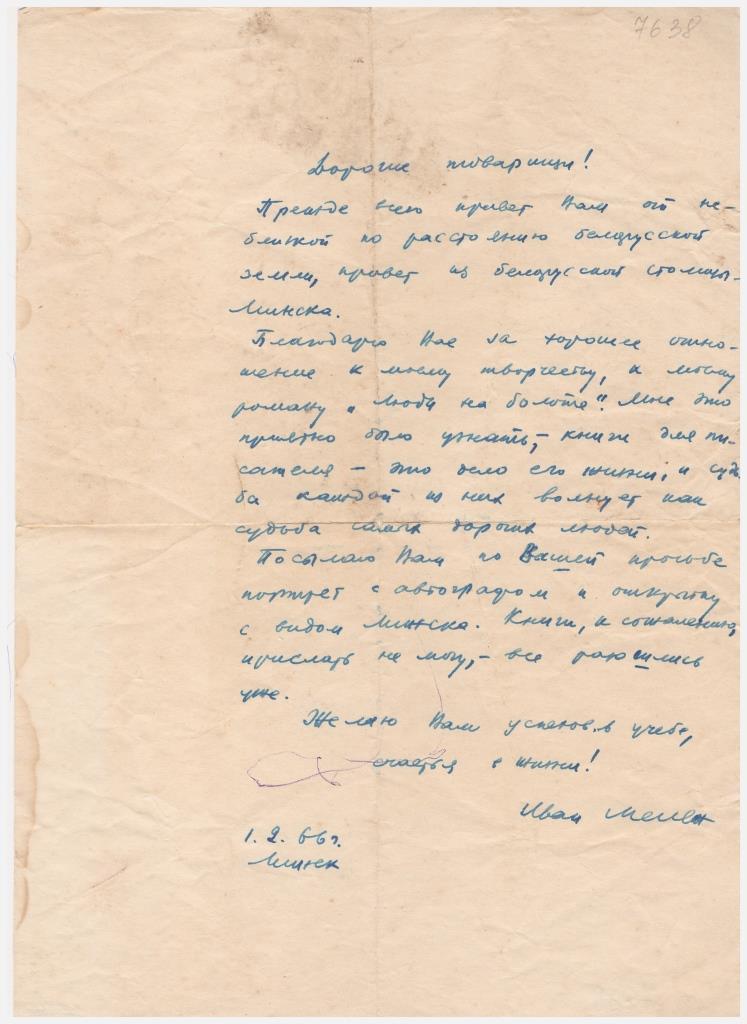 7638
Дорогие товарищи!
Прежде всего привет Вам от не-
близкой по расстоянию белорусской
земли, привет из белорусской столицы-
Минска.
Благодарю Вас за хорошее отно-
шение к моему творчеству, к моему
роману „Люди на болоте". Мне это
приятно было узнать,- книги для пи-
сателя - это дело его жизни, и судь-
ба каждой из них волнует как
судьба самых дорогих людей.
Посылаю Вам по Вашей просьбе
портрет с автографом и открытку
с видом Минска. Книги, к сожалению,
прислать не могу,- все разошлись
уже.
Желаю Вам успехов в учебе,
счастья в жизни!
Иван Мележ
1. 2. 66 г.
Минск